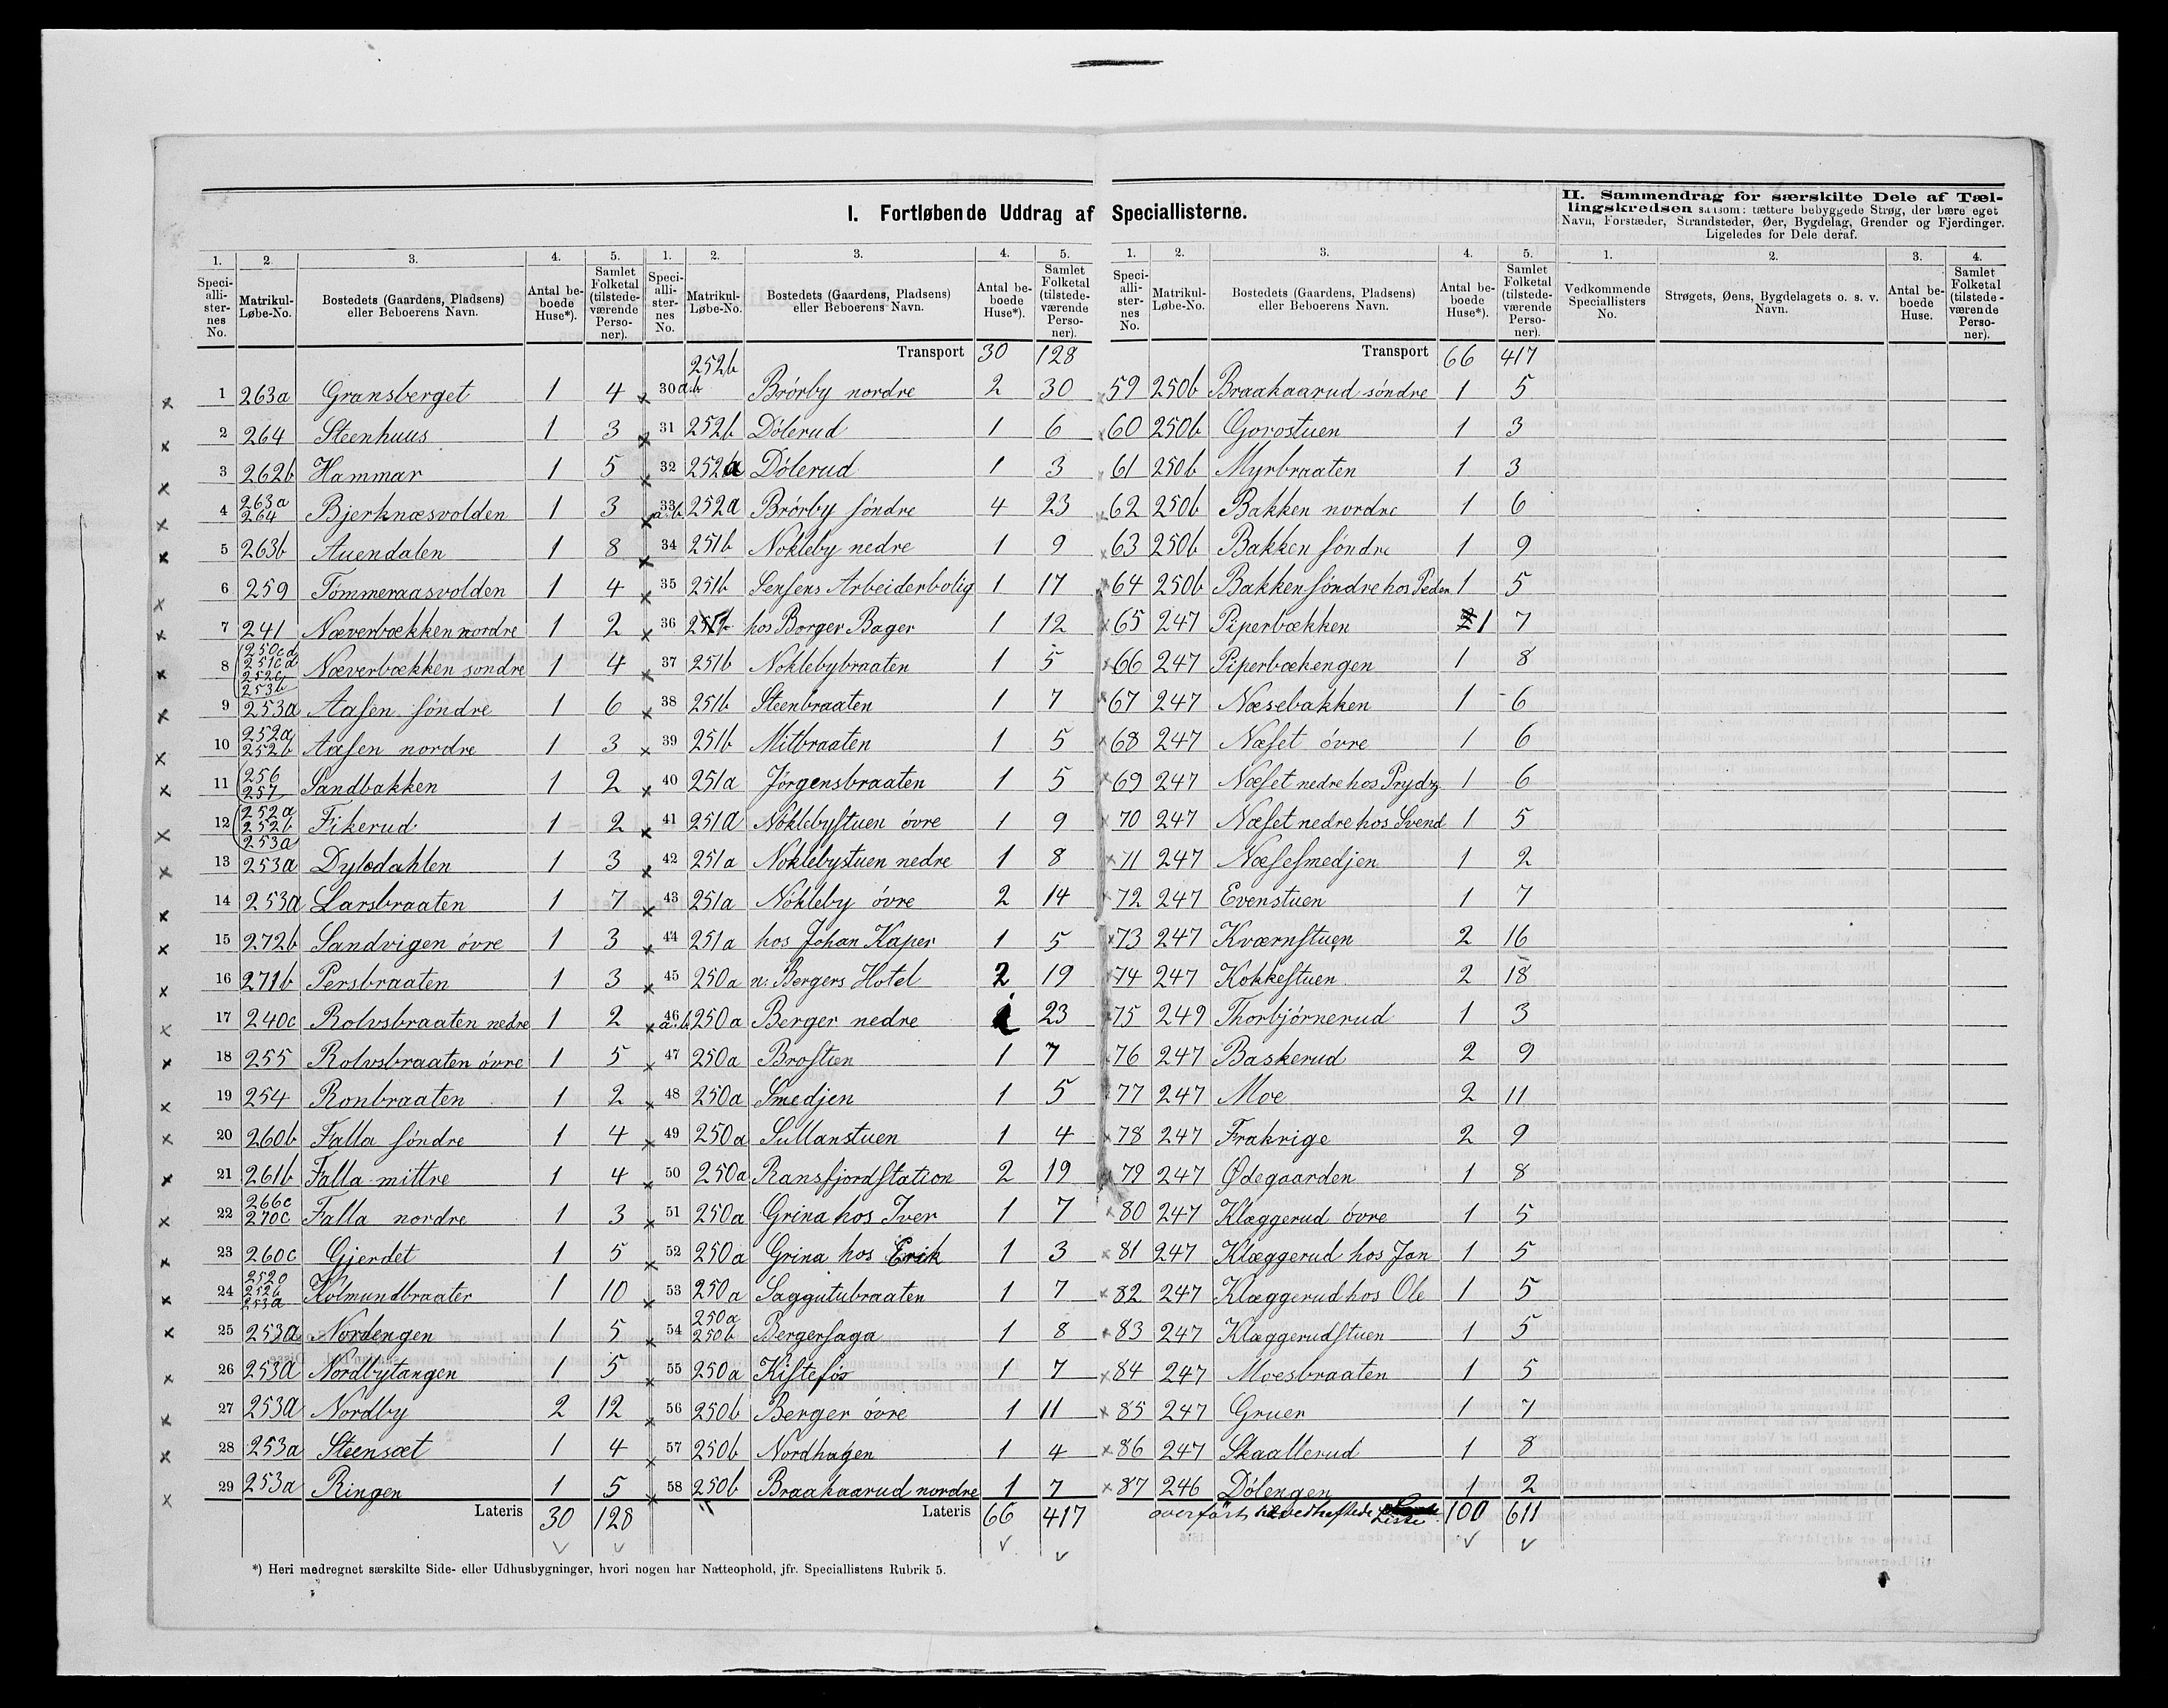 I. Fortløbende Uddrag af Speciallisterne.
II. Sammendrag for særskilte Dele af Tæl-
lingskredsen saasom: tættere bebyggede Strøg, der bære eget
Navn, Forstæder, Strandsteder, Øer, Bygdelag, Grender og Fjerdinger.
Ligeledes for Dele deraf.
1. 2. 3. 4. 5.
Speci-alli-ster-nes No. Matrikul-Løbe-No. Bostedets (Gaardens, Pladsens) eller Beboerens Navn. Antal be-boede Huse*). Samlet Folketal (tilstede-værende Perso-ner).
1 263a Gransberget 1 4
2 264 Steenhuus 1 3
3 262b Hammar 1 5
4 263a 264 Bjerknæsvolden 1 3
5 263b Auendalen 1 8
6 259 Tømmeraasvolden 1 4
7 241 Næverbækken nordre 1 2
8 250cd 251cd 252c 253b Næverbækken søndre 1 4
9 253a Aasen søndre 1 6
10 252a 252b Aasen nordre 1 3
11 256 257 Sandbakken 1 2
12 252a 252b 253a Fikerud 1 2
13 253a Dyledahlen 1 3
14 253a Larsbraaten 1 7
15 272b Sandvigen øvre 1 3
16 271b Persbraaten 1 3
17 240c Rolvsbraaten nedre 1 2
18 255 Rolvsbraaten øvre 1 5
19 254 Ronbraaten 1 2
20 260b Falla søndre 1 4
21 261b Falla mittre 1 4
22 266c 270c Falla nordre 1 3
23 260c Gjerdet 1 5
24 252b 253a Kolmundbraaten 1 10
25 253a Nordengen 1 5
26 253a Nordbytangen 1 5
27 253a Nordby 2 12
28 253a Steensæt 1 4
29 253a Ringen 1 5
Lateris 30 128
1. 2. 3. 4. 5.
Speci-alli-ster-nes No. Matrikul-Løbe-No. Bostedets (Gaardens, Pladsens) eller Beboerens Navn. Antal be-boede Huse*). Samlet Folketal (tilstede-værende Perso-ner).
Transport 30 128
30 a.b 252b Brørby nordre 2 30
31 252b Dølerud 1 6
32 252a Dølerud 1 3
33 a.b. 252a Brørby søndre 4 23
34 251b Nøkleby nedre 1 9
35 251b Sensens Arbeiderbolig 1 17
36 hos Borger Bager 1 12
37 251b Noklebybraaten 1 5
38 251b Steenbraaten 1 7
39 251b Mitbraaten 1 5
40 251a Jørgensbraaten 1 5
41 251a Nøklebystuen øvre 1 9
42 251a Noklebystuen nedre 1 8
43 251a Nøkleby øvre 2 14
44 251a hos Johan Kaper 1 5
45 250a n: Bergers Hotel 2 19
46 a.b 250a Berger nedre 23
47 250a Brostien 1 7
48 250a Smedjen 1 5
49 250a Sullanstuen 1 4
50 250a Ransfjordstation 2 19
51 250a Grina hos Iver 1 7
52 250a Grina hos Erik 1 3
53 250a Saggutubraaten 1 7
54 250a 250b Bergersaga 1 8
55 250a Kistefos 1 7
56 250b Berger øvre 1 11
57 250b Nordhagen 1 4
58 250b Braakaarud nordre 1 7
Lateris 66 417
1. 2. 3. 4. 5.
Speci-alli-ster-nes No. Matrikul-Løbe-No. Bostedets (Gaardens, Pladsens) eller Beboerens Navn. Antal be-boede Huse*). Samlet Folketal (tilstede-værende Perso-ner).
Transport 66 417
59 250b Braakaarud søndre 1 5
60 250b Gorostuen 1 3
61 250b Myrbraaten 1 3
62 250b Bakken nordre 1 6
63 250b Bakken søndre 1 9
64 250b Bakken søndre hos Peder 1 5
65 247 Piperbækken 1 7
66 247 Piperbækengen 1 8
67 247 Næsebakken 1 6
68 247 Næset øvre 1 6
69 247 Næset nedre hos Prydz 1 6
70 247 Næset nedre hos Svend 1 5
71 247 Næsesmedjen 1 2
72 247 Evenstuen 1 7
73 247 Kværnstuen 2 16
74 247 Kokkestuen 2 18
75 249 Thorbjørnerud 1 3
76 247 Baskerud 2 9
77 247 Moe 2 11
78 247 Frakrige 2 9
79 247 Ødegaarden 1 8
80 247 Klæggerud øvre 1 5
81 247 Klæggerud hos Jan 1 5
82 247 Klæggerud hos Ole 1 5
83 247 Klæggerudstuen 1 5
84 247 Moesbraaten 1 5
85 247 Gruer 1 7
86 247 Skaallerud 1 8
87 246 Dølengen 1 2
overført til vedhæftede Liste 100 611
1. 2. 3. 4.
Vedkommende Speciallisters No. Strøgets, Øens, Bygdelagets o. s. v. Navn. Antal be-boede Huse. Samlet Folketal (tilstede-værende Perso-ner).
*) Heri medregnet særskilte Side- eller Udhusbygninger, hvori nogen har Natteophold, jfr. Speciallistens Rubrik 5.